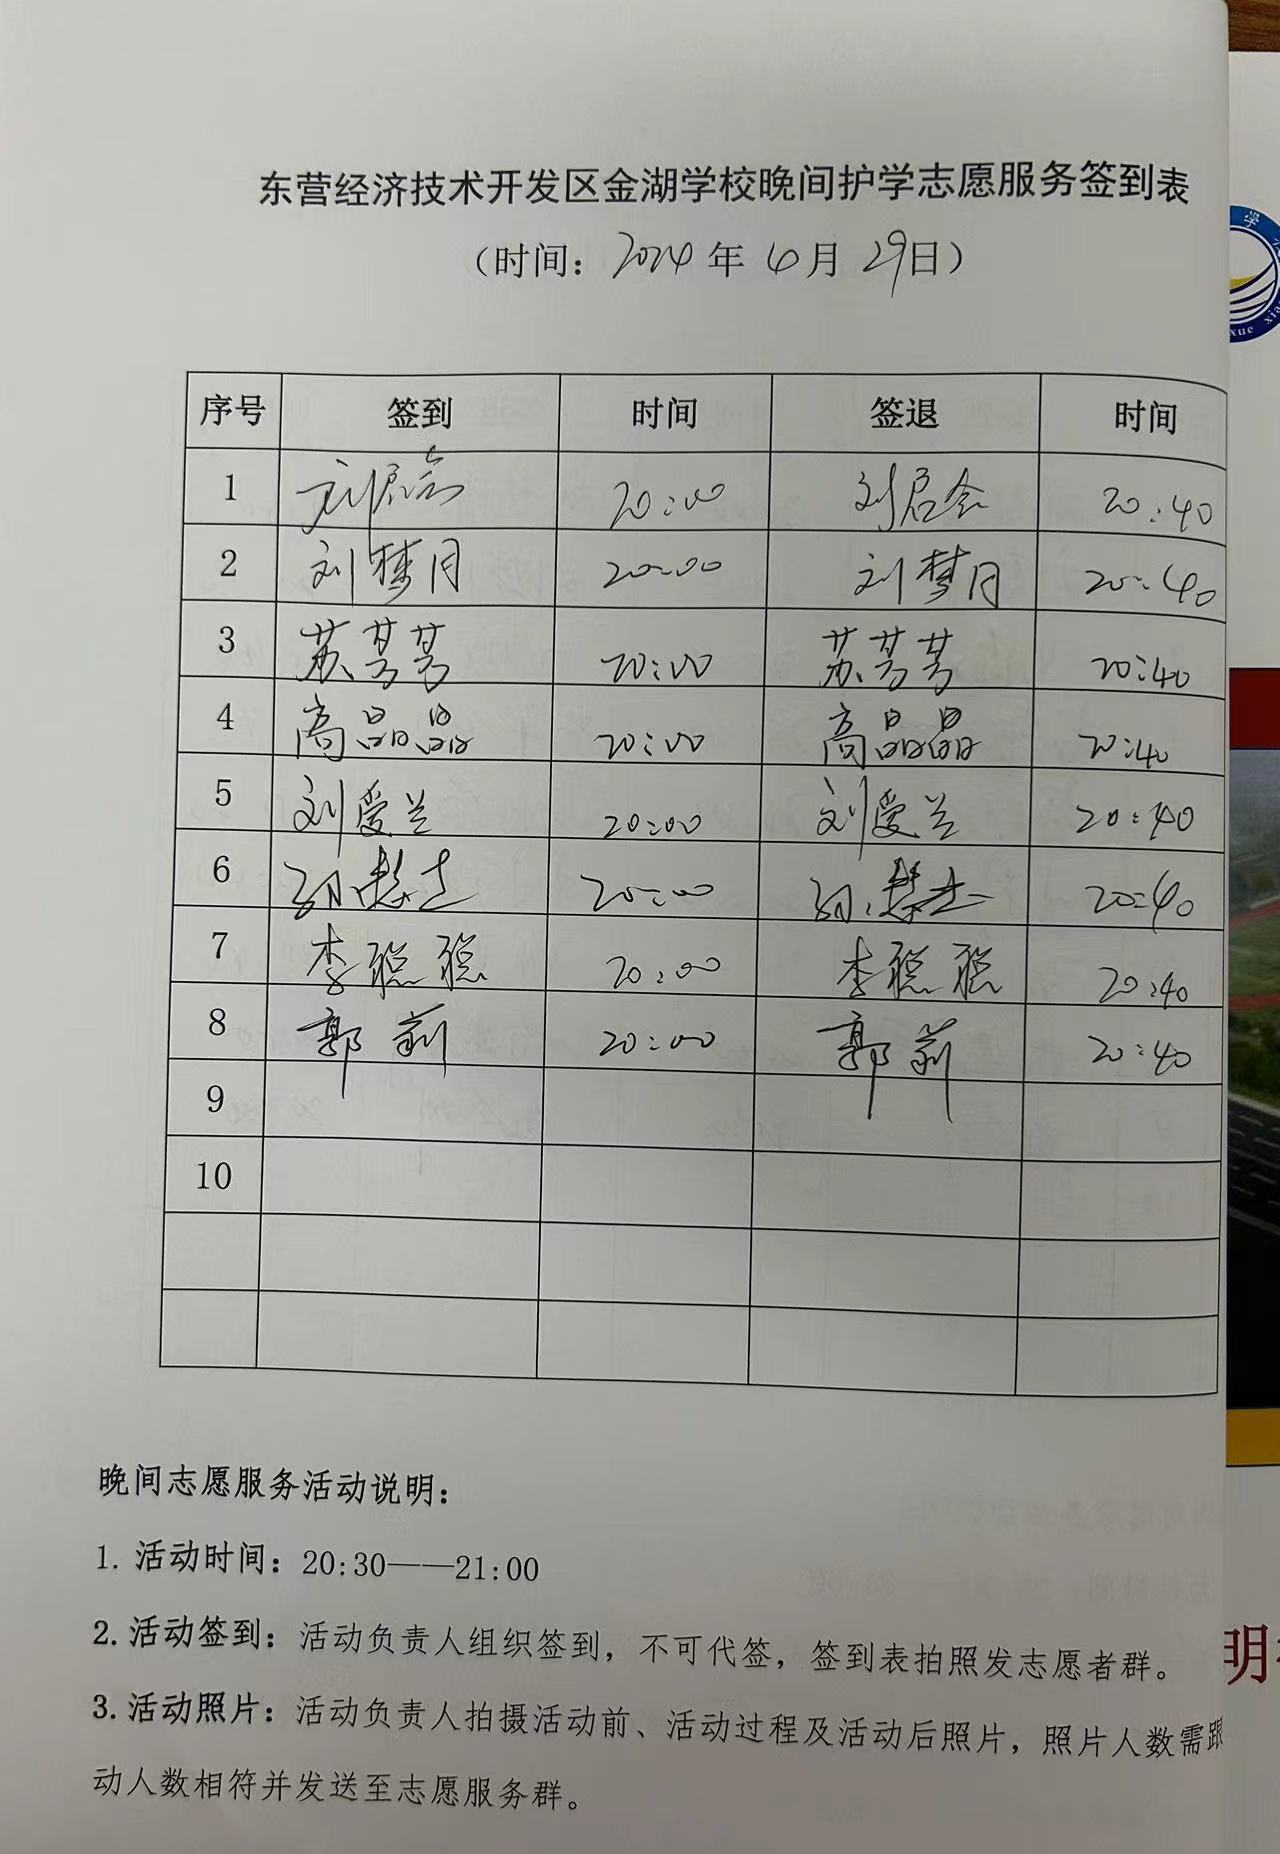 东营经济技术开发区金湖学校晚间护学志愿服务签到表
（时间：2024年6月29日）
序号 签到 时间 签退 时间
1 刘启会 20:00 刘启会 20:40
2 刘梦月 20:00 刘梦月 20:40
3 苏芳芳 20:00 苏芳芳 20:40
4 高晶晶 20:00 高晶晶 20:40
5 刘爱兰 20:00 刘爱兰 20:40
6 20:00 20:40
7 李聪聪 20:00 李聪聪 20:40
8 郭莉 20:00 郭莉 20:40
9
10
晚间志愿服务活动说明：
1. 活动时间：20:30——21:00
2. 活动签到：活动负责人组织签到，不可代签，签到表拍照发志愿者群。
3. 活动照片：活动负责人拍摄活动前、活动过程及活动后照片，照片人数需跟
动人数相符并发送至志愿服务群。
学
xue
明